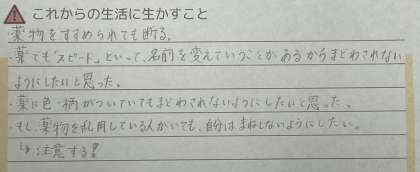 これからの生活に生かすこと
・薬物をすすめられても断る。
・薬でも「スピード」といって、名前を変えていうことがあるからまどわされない
ようにしたいと思った。
・薬に色・柄がついていてもまどわされないようにしたいと思った。
・もし、薬物を乱用している人がいても、自分はまねしないようにしたい。
↳注意する!